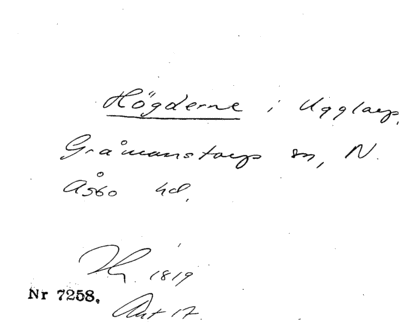 Högderne i Ugglarp,
Gråmanstorps sn, N.
Åsbo hd.
1819
Nr 7258.
Akt 17.